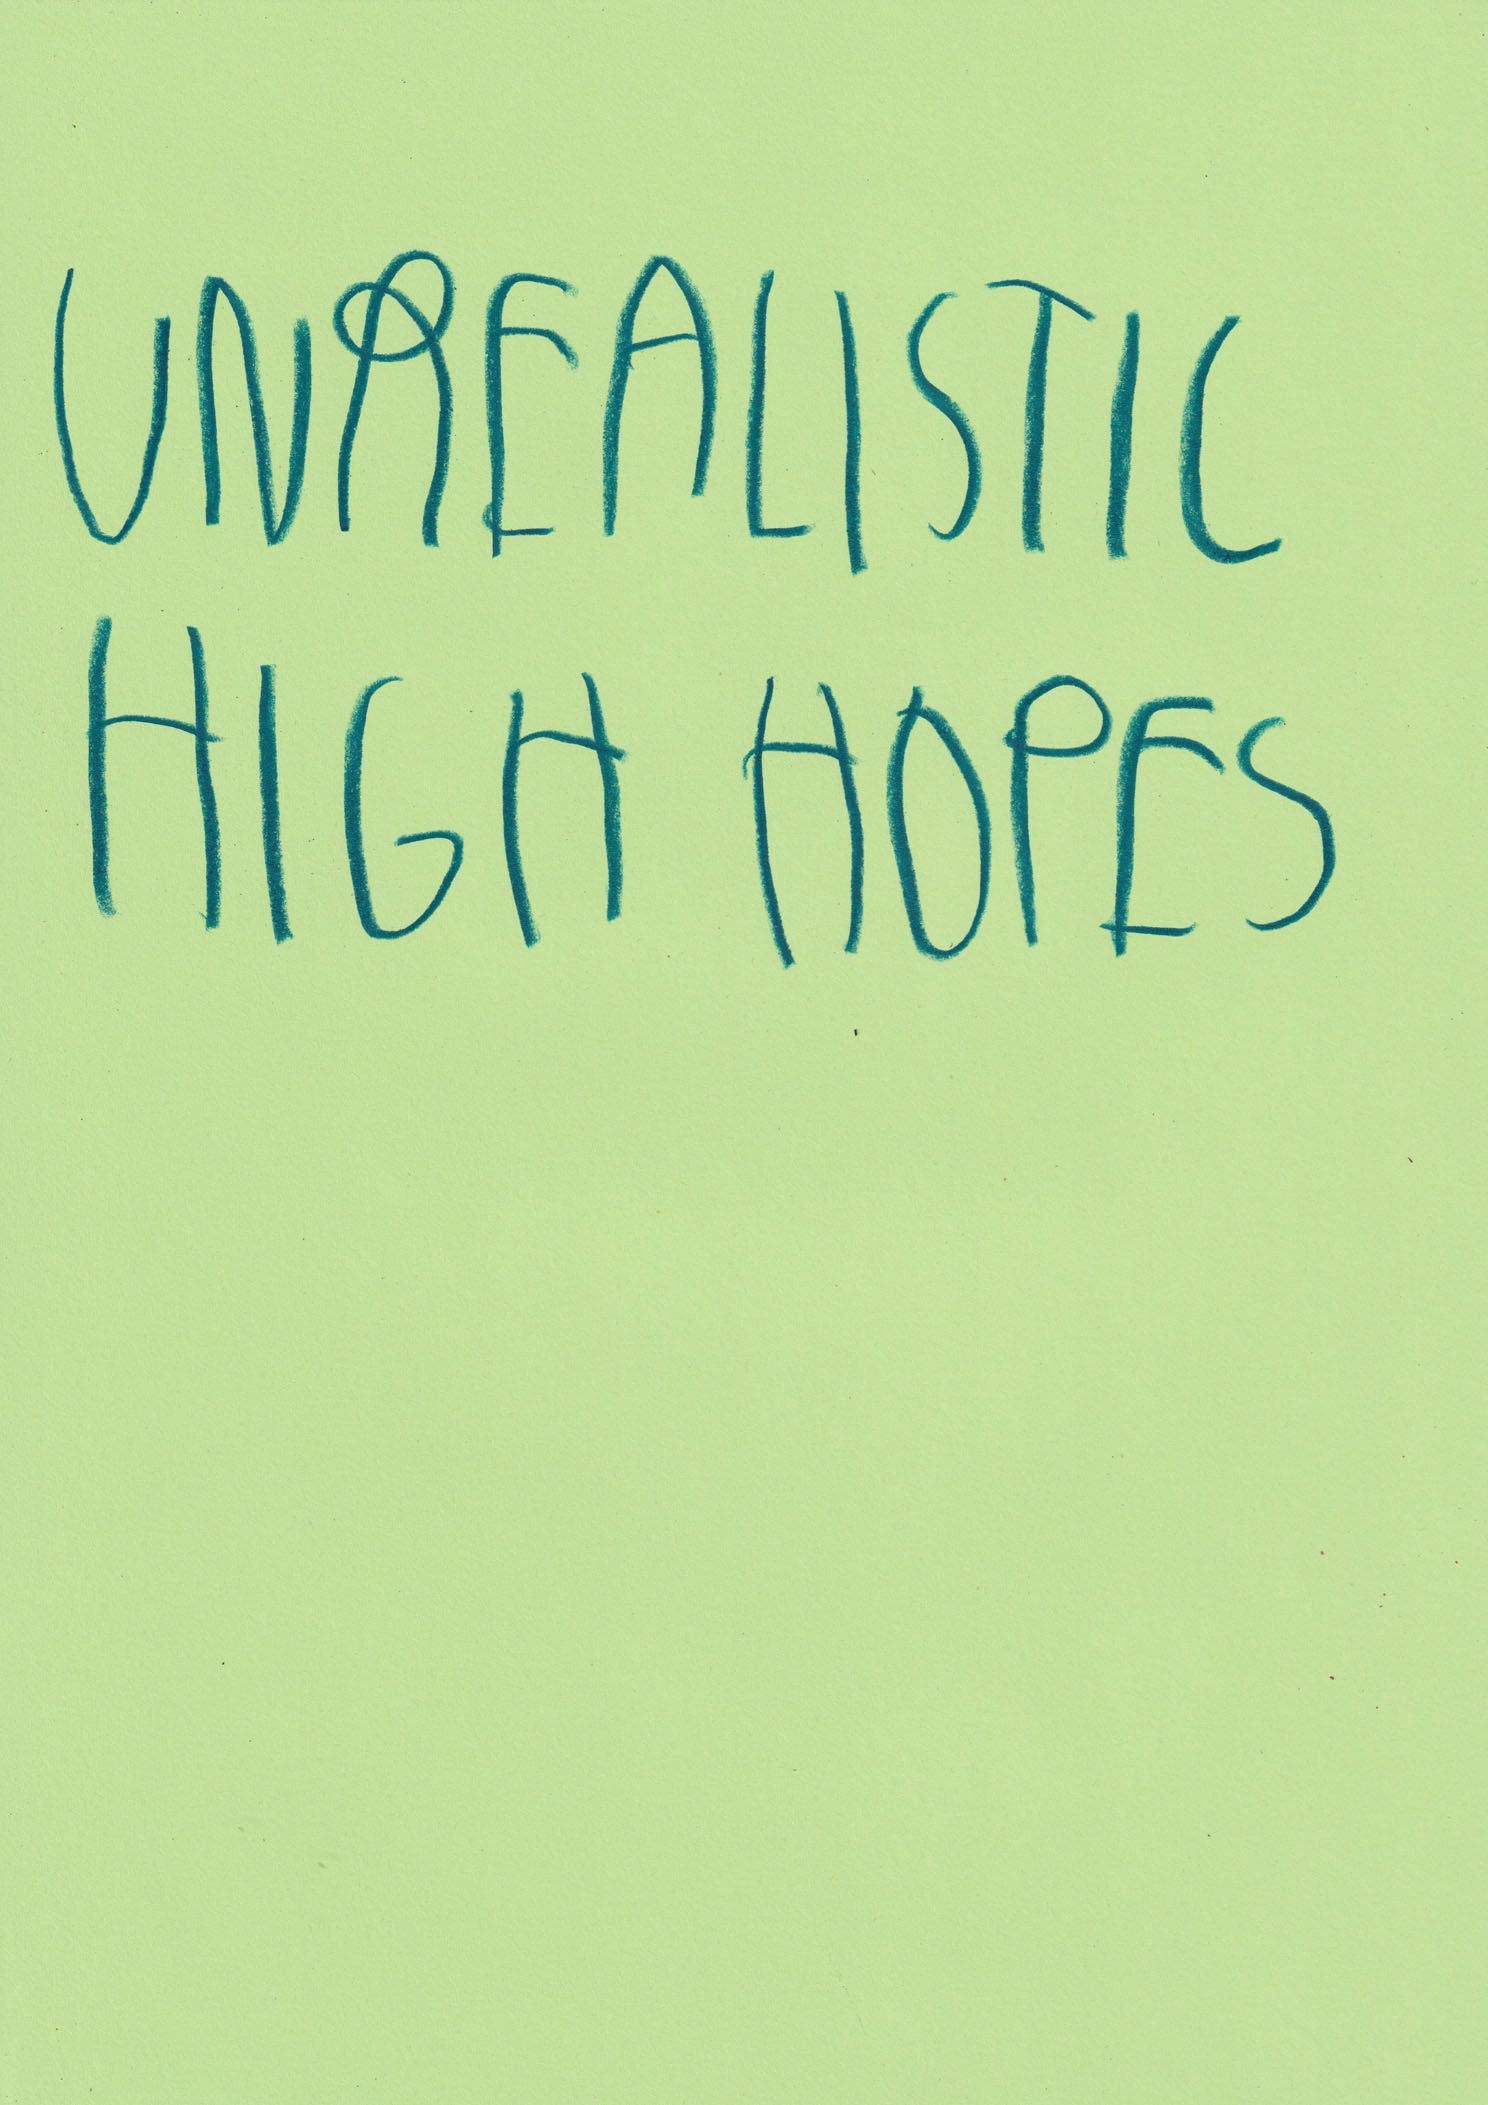 UNREALISTIC
HIGH HOPES